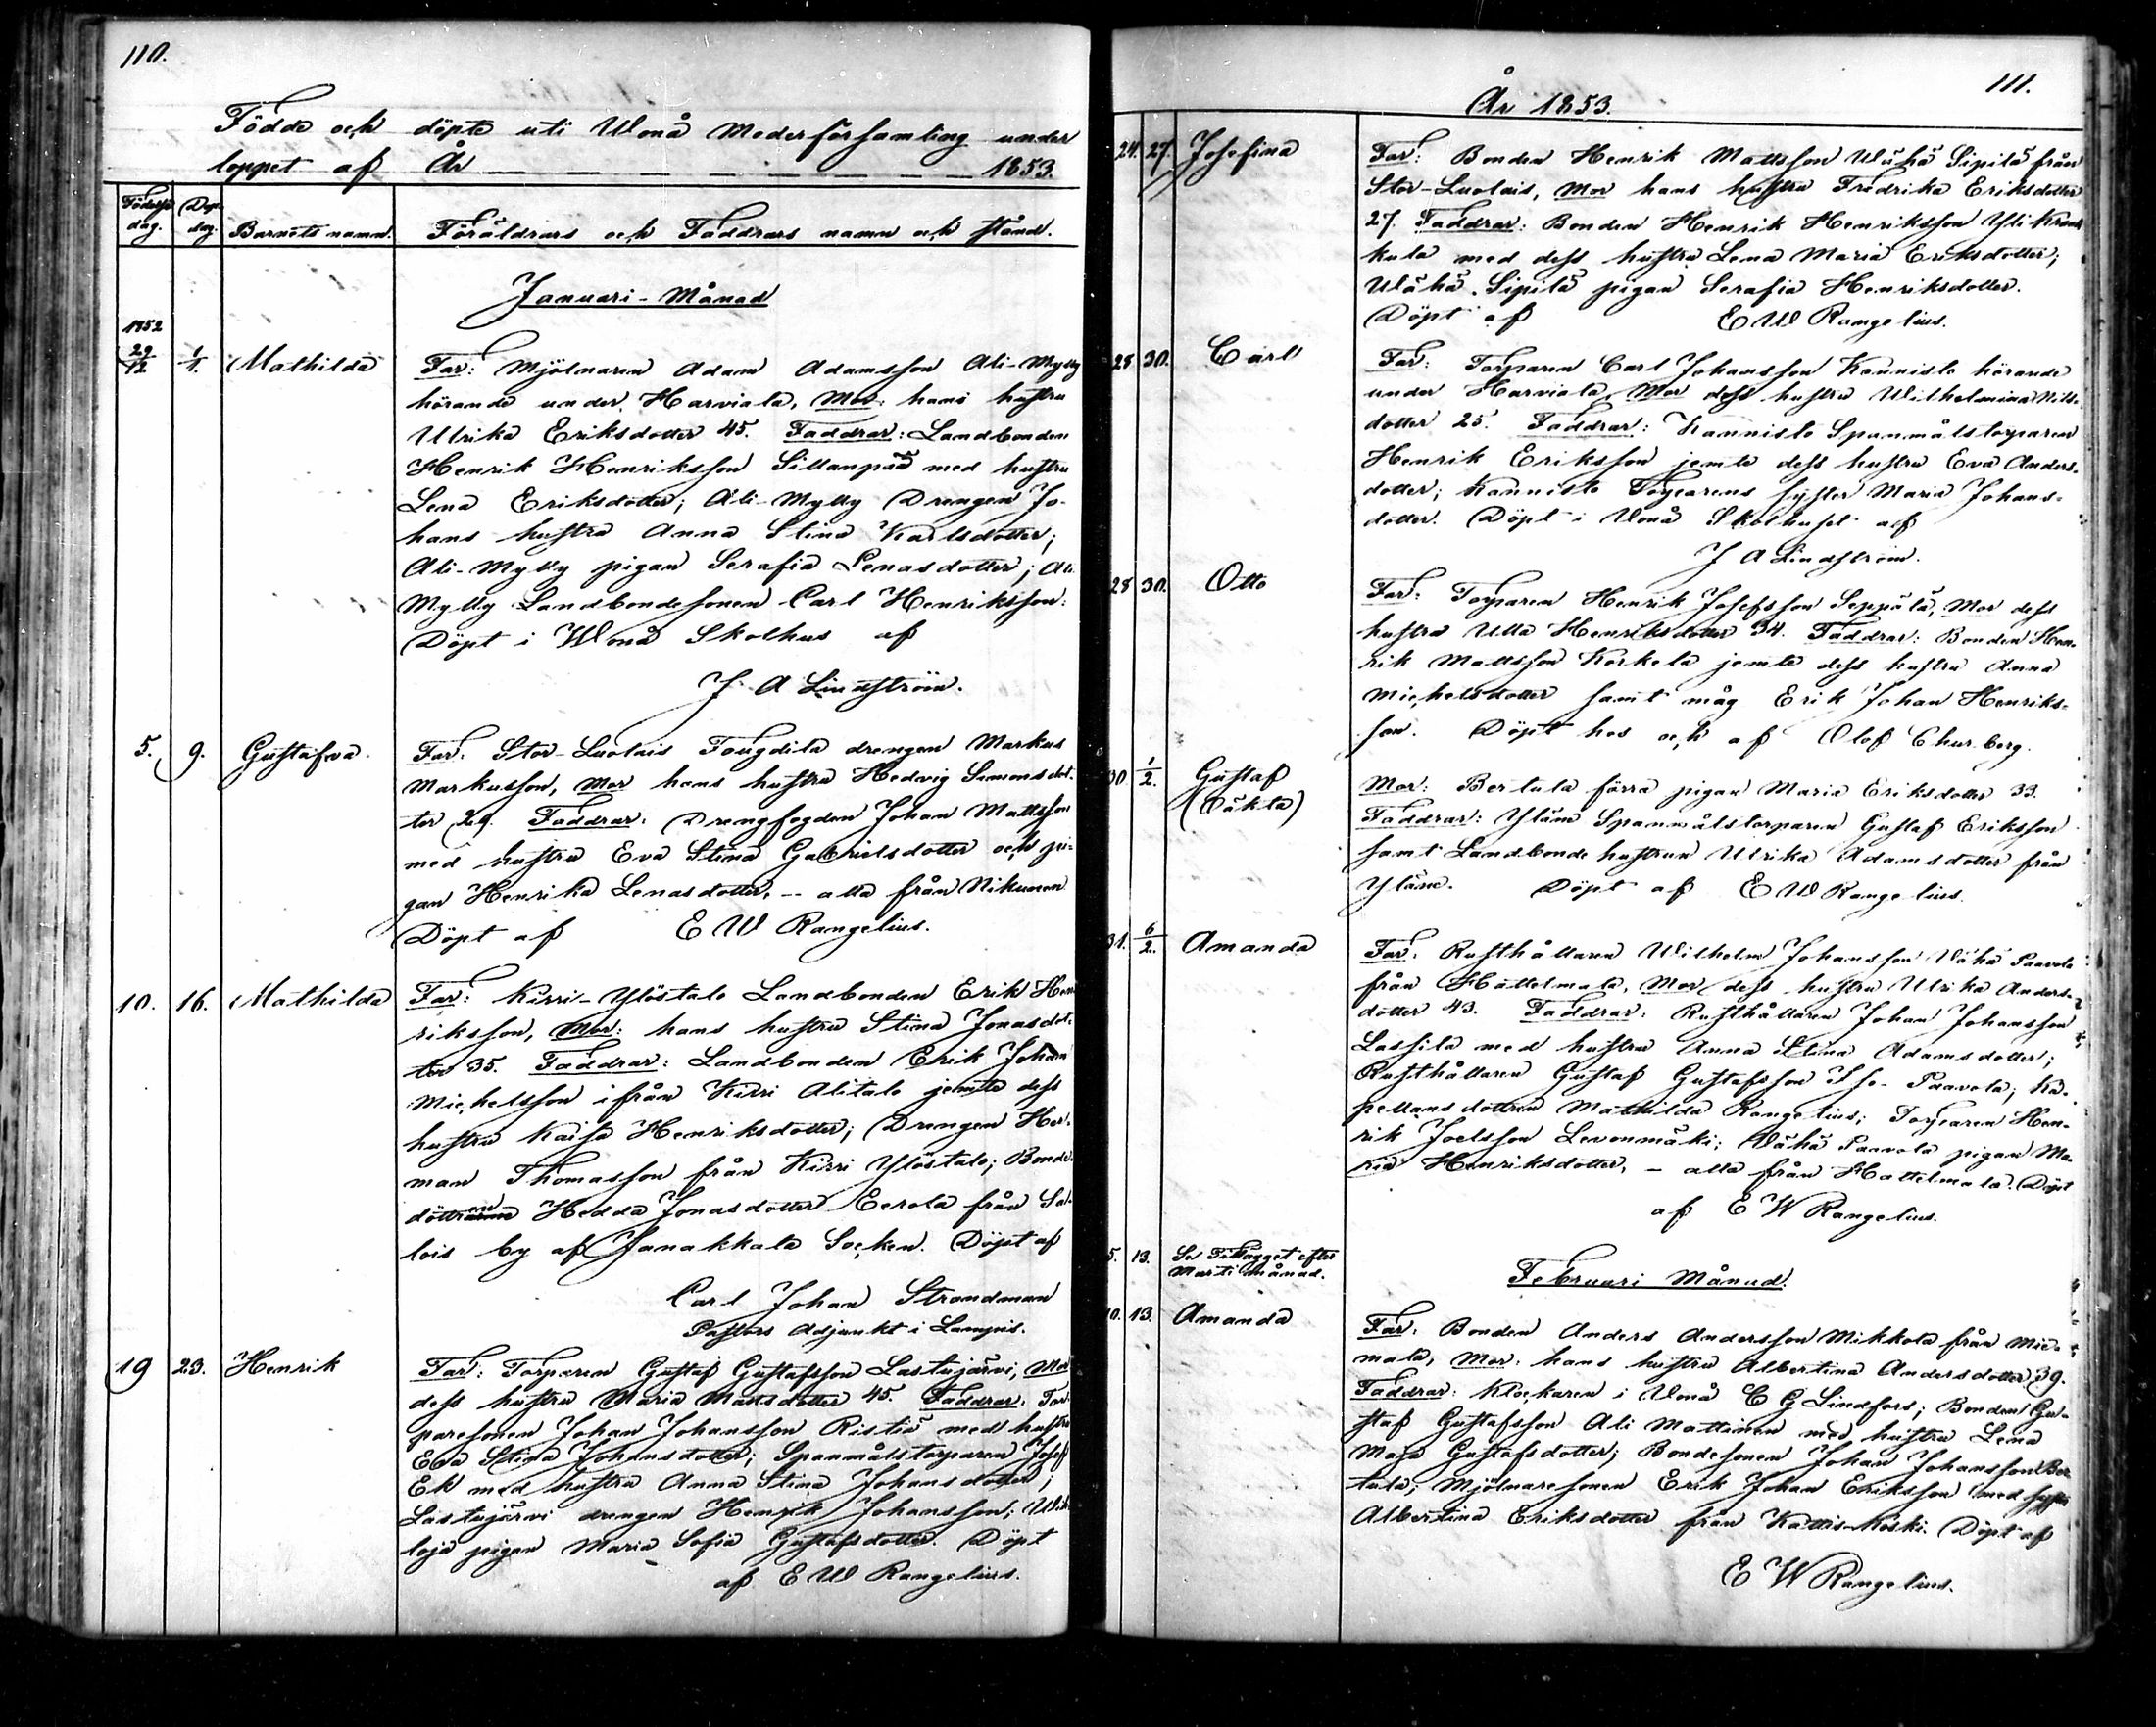 110.
Födde och döpte uti Wonå Moderförsamling under
loppet af År 1853.
Födelse dag. Döp. dag. Barnets namn. Föräldrars och Faddrars namn och stånd.
Januari-Månad
1852
29/12 1/1. Mathilda Far: Mjölnaren Adam Adamsson Ali-Mylly
hörande under Harviala, Mor: hans hustru
Ulrika Eriksdotter 45. Faddrar: Landbonden
Henrik Henriksson Sillanpää med hustru
Lena Eriksdotter; Ali-Mylly Drengen Jo-
hans hustru Anna Stina Karlsdotter;
Ali-Mylly pigan Serafia Lenasdotter; Ali
Mylly Landbondesonen Carl Henriksson:
Döpt i Wonå Skolhus af
J. A Lindström.
5. 9. Gustafva. Far: Stor-Luolais Tougdila drengen Markus
Markusson, Mor hans hustru Hedvig Simonsdot-
ter 29. Faddrar: Drengfogden Johan Mattsson
med hustru Eva Stina Gabrielsdotter och pi-
gan Henrika Lenasdotter, - alla från Nikunen
Döpt af E W Rangelius.
10. 16. Mathilda Far: Kirri-Ylöstalo Landbonden Erik Hen
riksson, Mor: hans hustru Stina Jonasdot-
ter 35. Faddrar: Landbonden Erik Johan
Michelsson ifrån Kirri Alitalo jemte dess
hustru Kaisa Henriksdotter; Drengen Her-
man Thomasson från Kirri Ylöstalo; Bonde-
döttrarne Hedda Jonasdotter Eerola från Sa-
lois by af Janakkala Socken. Döpt af
Carl Johan Strandman
Pastors Adjunkt i Lampis.
19 23. Henrik Far: Torparen Gustaf Gustafsson Lastujärvi, Mor
dess hustru Maria Mattsdotter 45. Faddrar: Tor-
paresonen Johan Johansson Ristiä med hustru
Eva Stina Johansdotter; Spanmålstorparen Josef
Ek med hustru Anna Stina Johansdotter;
Lastujärvi drengen Henrik Johansson;
loja pigan Maria Sofia Gustafsdotter. Döpt
af E W Rangelius.
111.
År 1853.
24. 27. Josefina Far: Bonden Henrik Mattsson Wähä Sipilä från
Stor-Luolais, Mor hans hustru Fredrika Eriksdotter
27. Faddrar: Bonden Henrik Henriksson Yli Kran
kala med dess hustru Lena Maria Eriksdotter;
Wähä Sipilä pigan Serafia Henriksdotter.
Döpt af E W Rangelius.
28 30. Carl Far: Torparen Carl Johansson Kannisto hörande
under Harviala, Mor dess hustru Wilhelmina Nils-
dotter 25. Faddrar: Kannisto Spanmålstorparen
Henrik Eriksson jemte dess hustru Eva Anders-
dotter; Kannisto Torparens syster Maria Johans-
dotter. Döpt i Wonå Skolhuset af
J A Lindström.
28 30. Otto Far: Torparen Henrik Josefsson Seppälä, Mor dess
hustru Ulla Henriksdotter 34. Faddrar: Bonden Hen-
rik Mattsson Korkela jemte dess hustru Anna
Michelsdotter samt måg Erik Johan Henriks-
son. Döpt hos och af Olof Churberg.
30 1/2. Gustaf
(Oäkta) Mor: Bertula förra pigan Maria Eriksdotter 33.
Faddrar: Yläne Spanmålstorparen Gustaf Eriksson
samt Landbonde hustrun Ulrika Adamsdotter från
Yläne. Döpt af E W Rangelius.
31. 6/2. Amanda Far: Rusthållaren Wilhelm Johansson Wähä Paavola
från Hattelmala, Mor dess hustru Ulrika Anders-
dotter 43. Faddrar: Rusthållaren Johan Johansson
Lassila med hustru Anna Stina Adamsdotter;
Rusthållaren Gustaf Gustafsson Iso-Paavola; Ka-
pellansdottren Mathilda Rangelius; Torparen Hen-
rik Joelsson Levonmäki; Wähä Paavola pigan Ma-
ria Henriksdotter, - alla från Hattelmala. Döpt
af E W Rangelius.
5. 13. Se Tillägget efter
Marti Månad.
Februari Månad.
10. 13. Amanda Far: Bonden Anders Andersson Mikkola från Mie-
mala, Mor: hans hustru Albertina Andersdotter 39.
Faddrar: Klockaren i Wonå C G Lindfors; Bonden Gu-
staf Gustafsson Ali Mattinen med hustru Lena
Maja Gustafsdotter; Bondesonen Johan Johansson Ber
tula; Mjölnaresonen Erik Johan Eriksson med syster
Albertina Eriksdotter från Kattis-Koski. Döpt af
E W Rangelius.